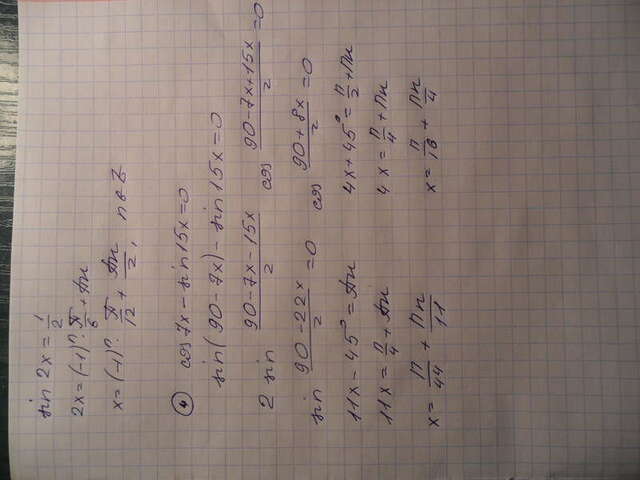 sin 2x = 1/2
2x = (-1)^n · π/6 + πn
x = (-1)^n · π/12 + πn/2, n∈Z
④ cos 7x - sin 15x = 0
sin(90 - 7x) - sin 15x = 0
2 sin (90 - 7x - 15x)/2 cos (90 - 7x + 15x)/2 = 0
sin (90 - 22x)/2 = 0 cos (90 + 8x)/2 = 0
11x - 45° = πn 4x + 45° = π/2 + πn
11x = π/4 + πn 4x = π/4 + πn
x = π/44 + πn/11 x = π/16 + πn/4